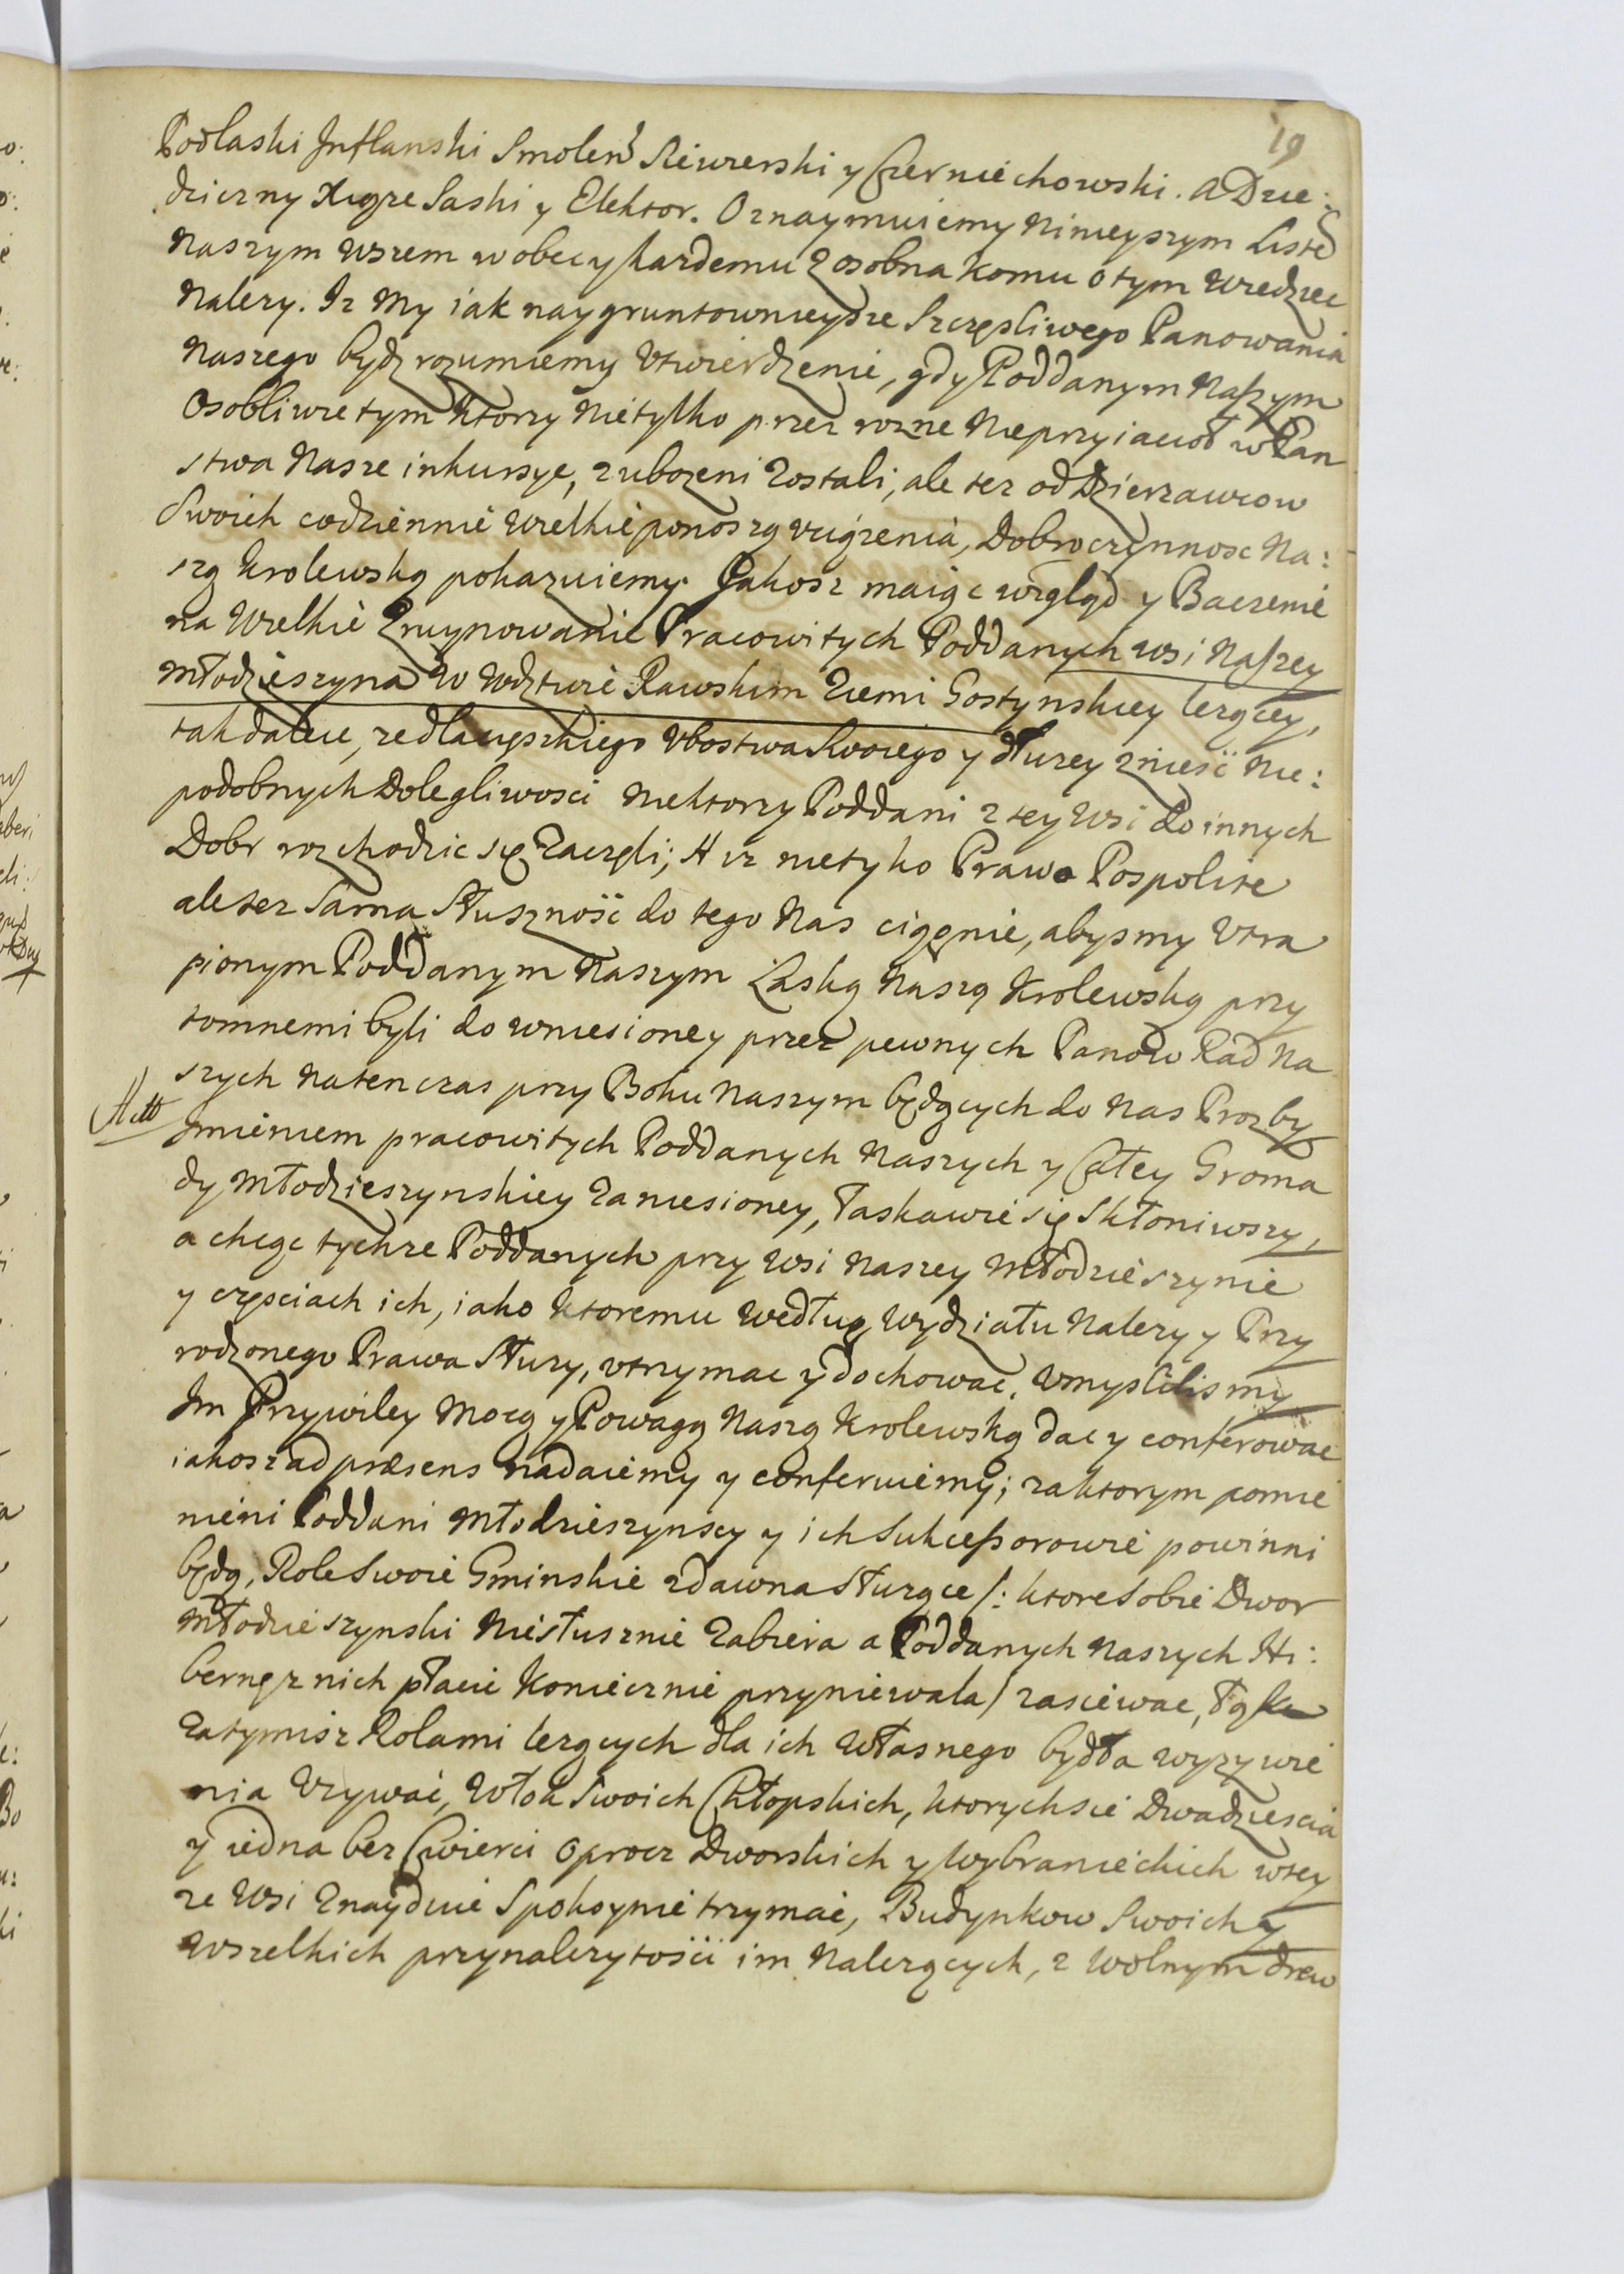 19
Podlaski Inflanski Smolen Siewierski y Czerniechowski. A Dzie:
dziczny Xiąże Saski y Elektor. Oznaymuiemy Ninieyszym Liste
Naszym wszem wobec y kazdemu zosobna komu o tym Wiedziec
Nalezy. Iz My iak naygruntownieysze Szczęsliwego Panowania
Naszego bydz rozumiemy Utwierdzenie, gdy Poddanym Naszym
Osobliwie tym ktorzy nietylko przez rozne Nieprzyiacioł w Pan
stwa Nasze inkursye, zubozeni Zostali, ale tez od Dzierzawcow
Swoich codziennie Wielkie ponoszą uciązenia, Dobroczynnosc Na:
szą Krolewską pokazuiemy. Jakosz maiąc wzgląd y Baczenie
na Wielkie Zruynowanie Pracowitych Poddanych wsi Naszey
Młodzieszyna W Wdztwie Rawskim Ziemi Gostynskiey lezącey,
tak dalece, ze dla cięszkiego Ubostwa Swoiego y dłuzey znieść Nie:
podobnych Dolegliwosci Niektorzy Poddani z tey Wsi do innych
Dobr rozchodzic się Zaczęli; A iz nietylko Prawo Pospolite
ale tez Sama Słuszność do tego Nas ciągnie, abysmy Utra
pionym Poddanym Naszym Łaską Naszą Krolewską przy
tomnemi byli do wniesioney przez pewnych Panow Rad Na
szych Natenczas przy Boku Naszym będących do Nas Prozby
Imieniem pracowitych Poddanych Naszych y Całey Groma
dy Młodzieszynskiey Zaniesioney, łaskawie się Skłoniwszy,
a chcąc tychze Poddanych przy Wsi Naszey Młodzieszynie
y częsciach ich, iako ktoremu według Wydziału Nalezy y Przy
rodzonego Prawa Słuzy, utrzymac y dochowac, Umyslilismy
Im Przywiley Mocą y Powagą Naszą Krolewską dac y conferowac
iakosz ad præsens nadaiemy y conferuiemy; za ktorym pomie
nieni Poddani Młodzieszynscy y ich Sukcessorowie powinni
będą, Role Swoie Gminskie zdawna Słuzące /: ktore Sobie Dwor
Młodzieszynski Niesłusznie Zabiera a Poddanych Naszych Hi:
bernę z nich płacic Koniecznie przyniewala / zasiewac, Łąk
Zatymisz Rolami lezących dla ich Własnego bydła wyzywie
nia Uzywać, Włok Swoich Chłopskich, ktorych sie Dwadziescia
y iedna bez Cwierci oprocz Dworskich y Wybranieckich w tey
ze Wsi Znayduie Spokoynie trzymać, Budynkow Swoich y
Wszelkich przynalezytości im Nalezących, z Wolnym drew